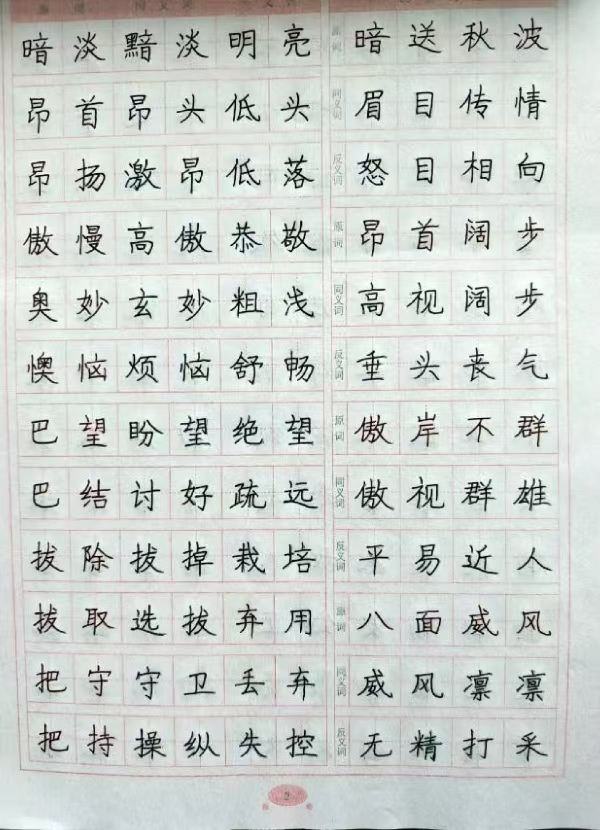 同义词
暗淡黯淡明亮
昂首昂头低头
昂扬激昂低落
傲慢高傲恭敬
奥妙玄妙粗浅
懊恼烦恼舒畅
巴望盼望绝望
巴结讨好疏远
拔除拔掉栽培
拔取选拔弃用
把守守卫丢弃
把持操纵失控
原词 暗送秋波
同义词 眉目传情
反义词 怒目相向
原词 昂首阔步
同义词 高视阔步
反义词 垂头丧气
原词 傲岸不群
同义词 傲视群雄
反义词 平易近人
原词 八面威风
同义词 威风凛凛
反义词 无精打采
2